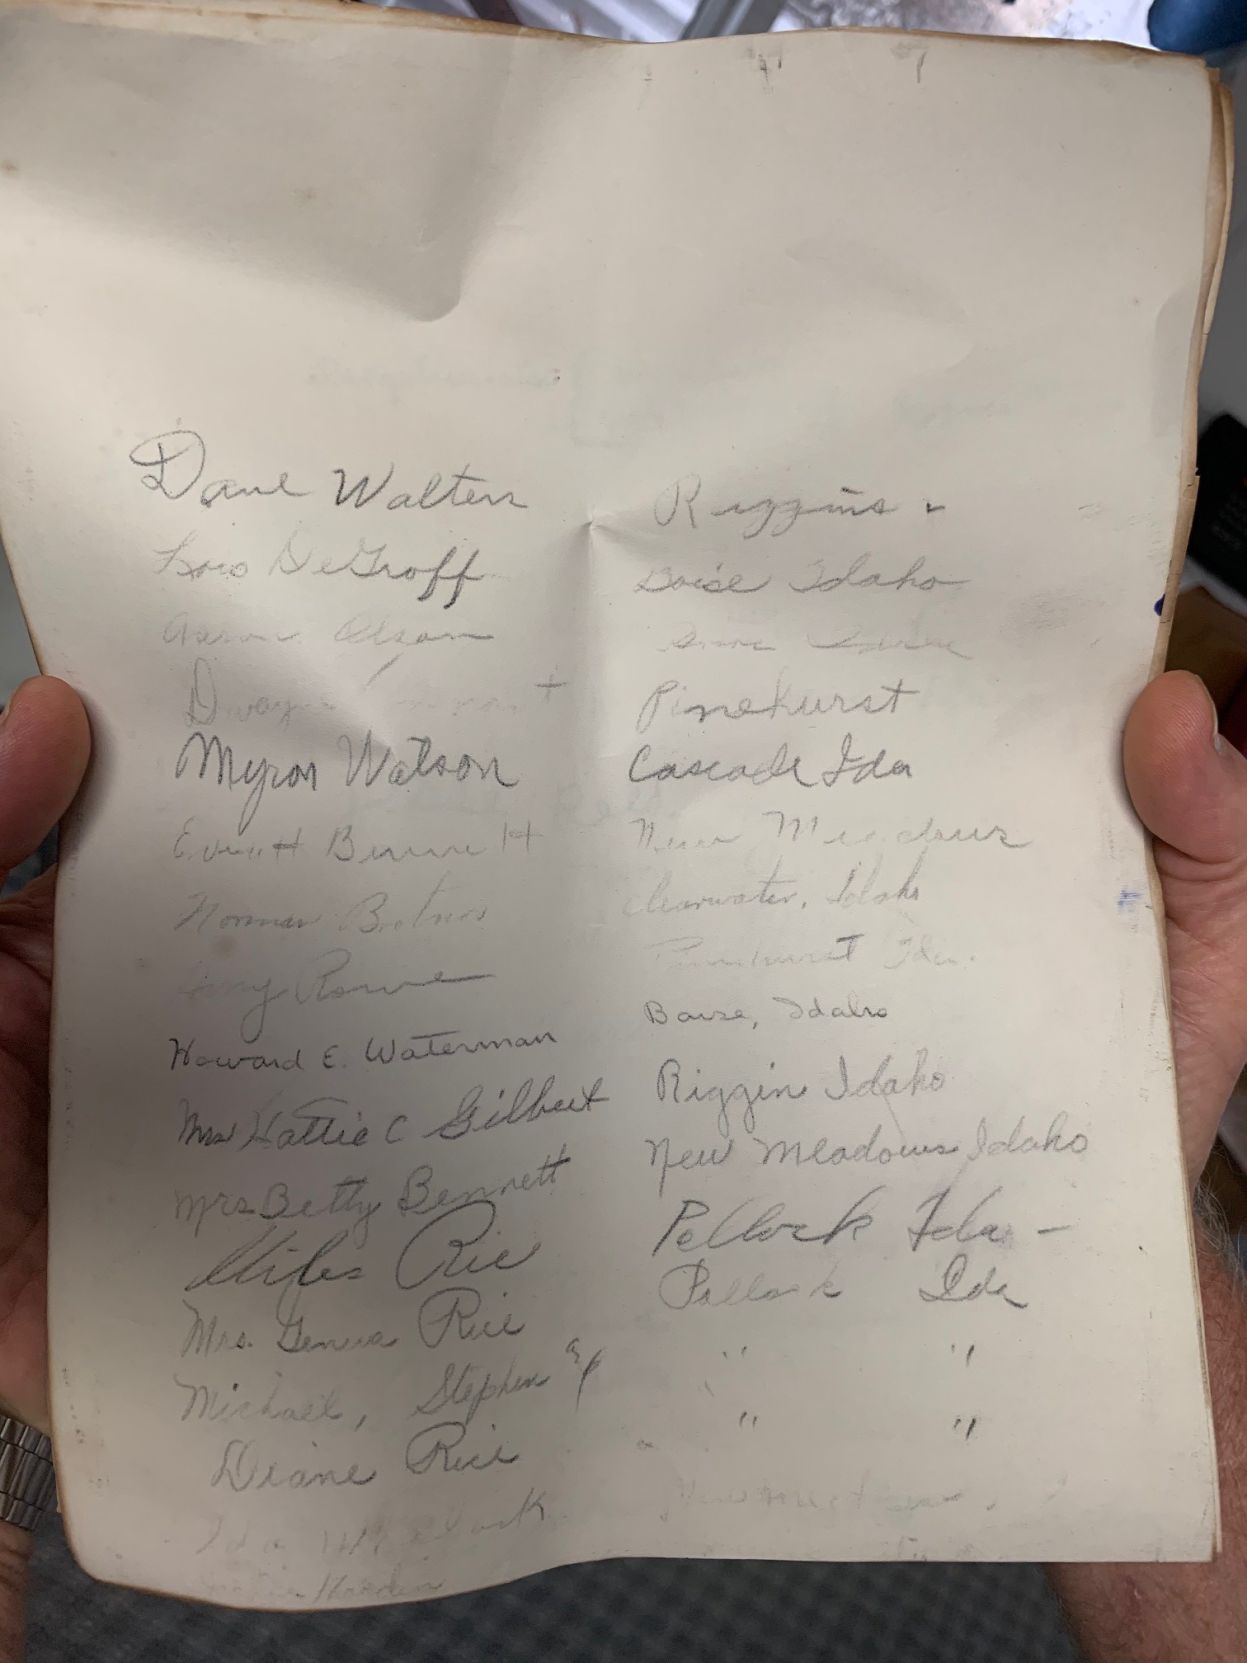 Dave Walters Riggins.
Lois DeGroff Boise Idaho
Aaron Olson
Pinehurst
Myron Watson Cascade Ida
Everett Bennett New Meadows
Norman Clearwater, Idaho
Rowe Pinehurst Ida.
Howard E. Waterman Boise, Idaho
Mrs Hattie C Gilbert Riggin Idaho
Mrs Betty Bennett New Meadows Idaho
Rice Pollock Ida -
Mrs. Geneva Rice Pollock Ida
Michael, Stephen & " "
Diane Rice " "
Ida